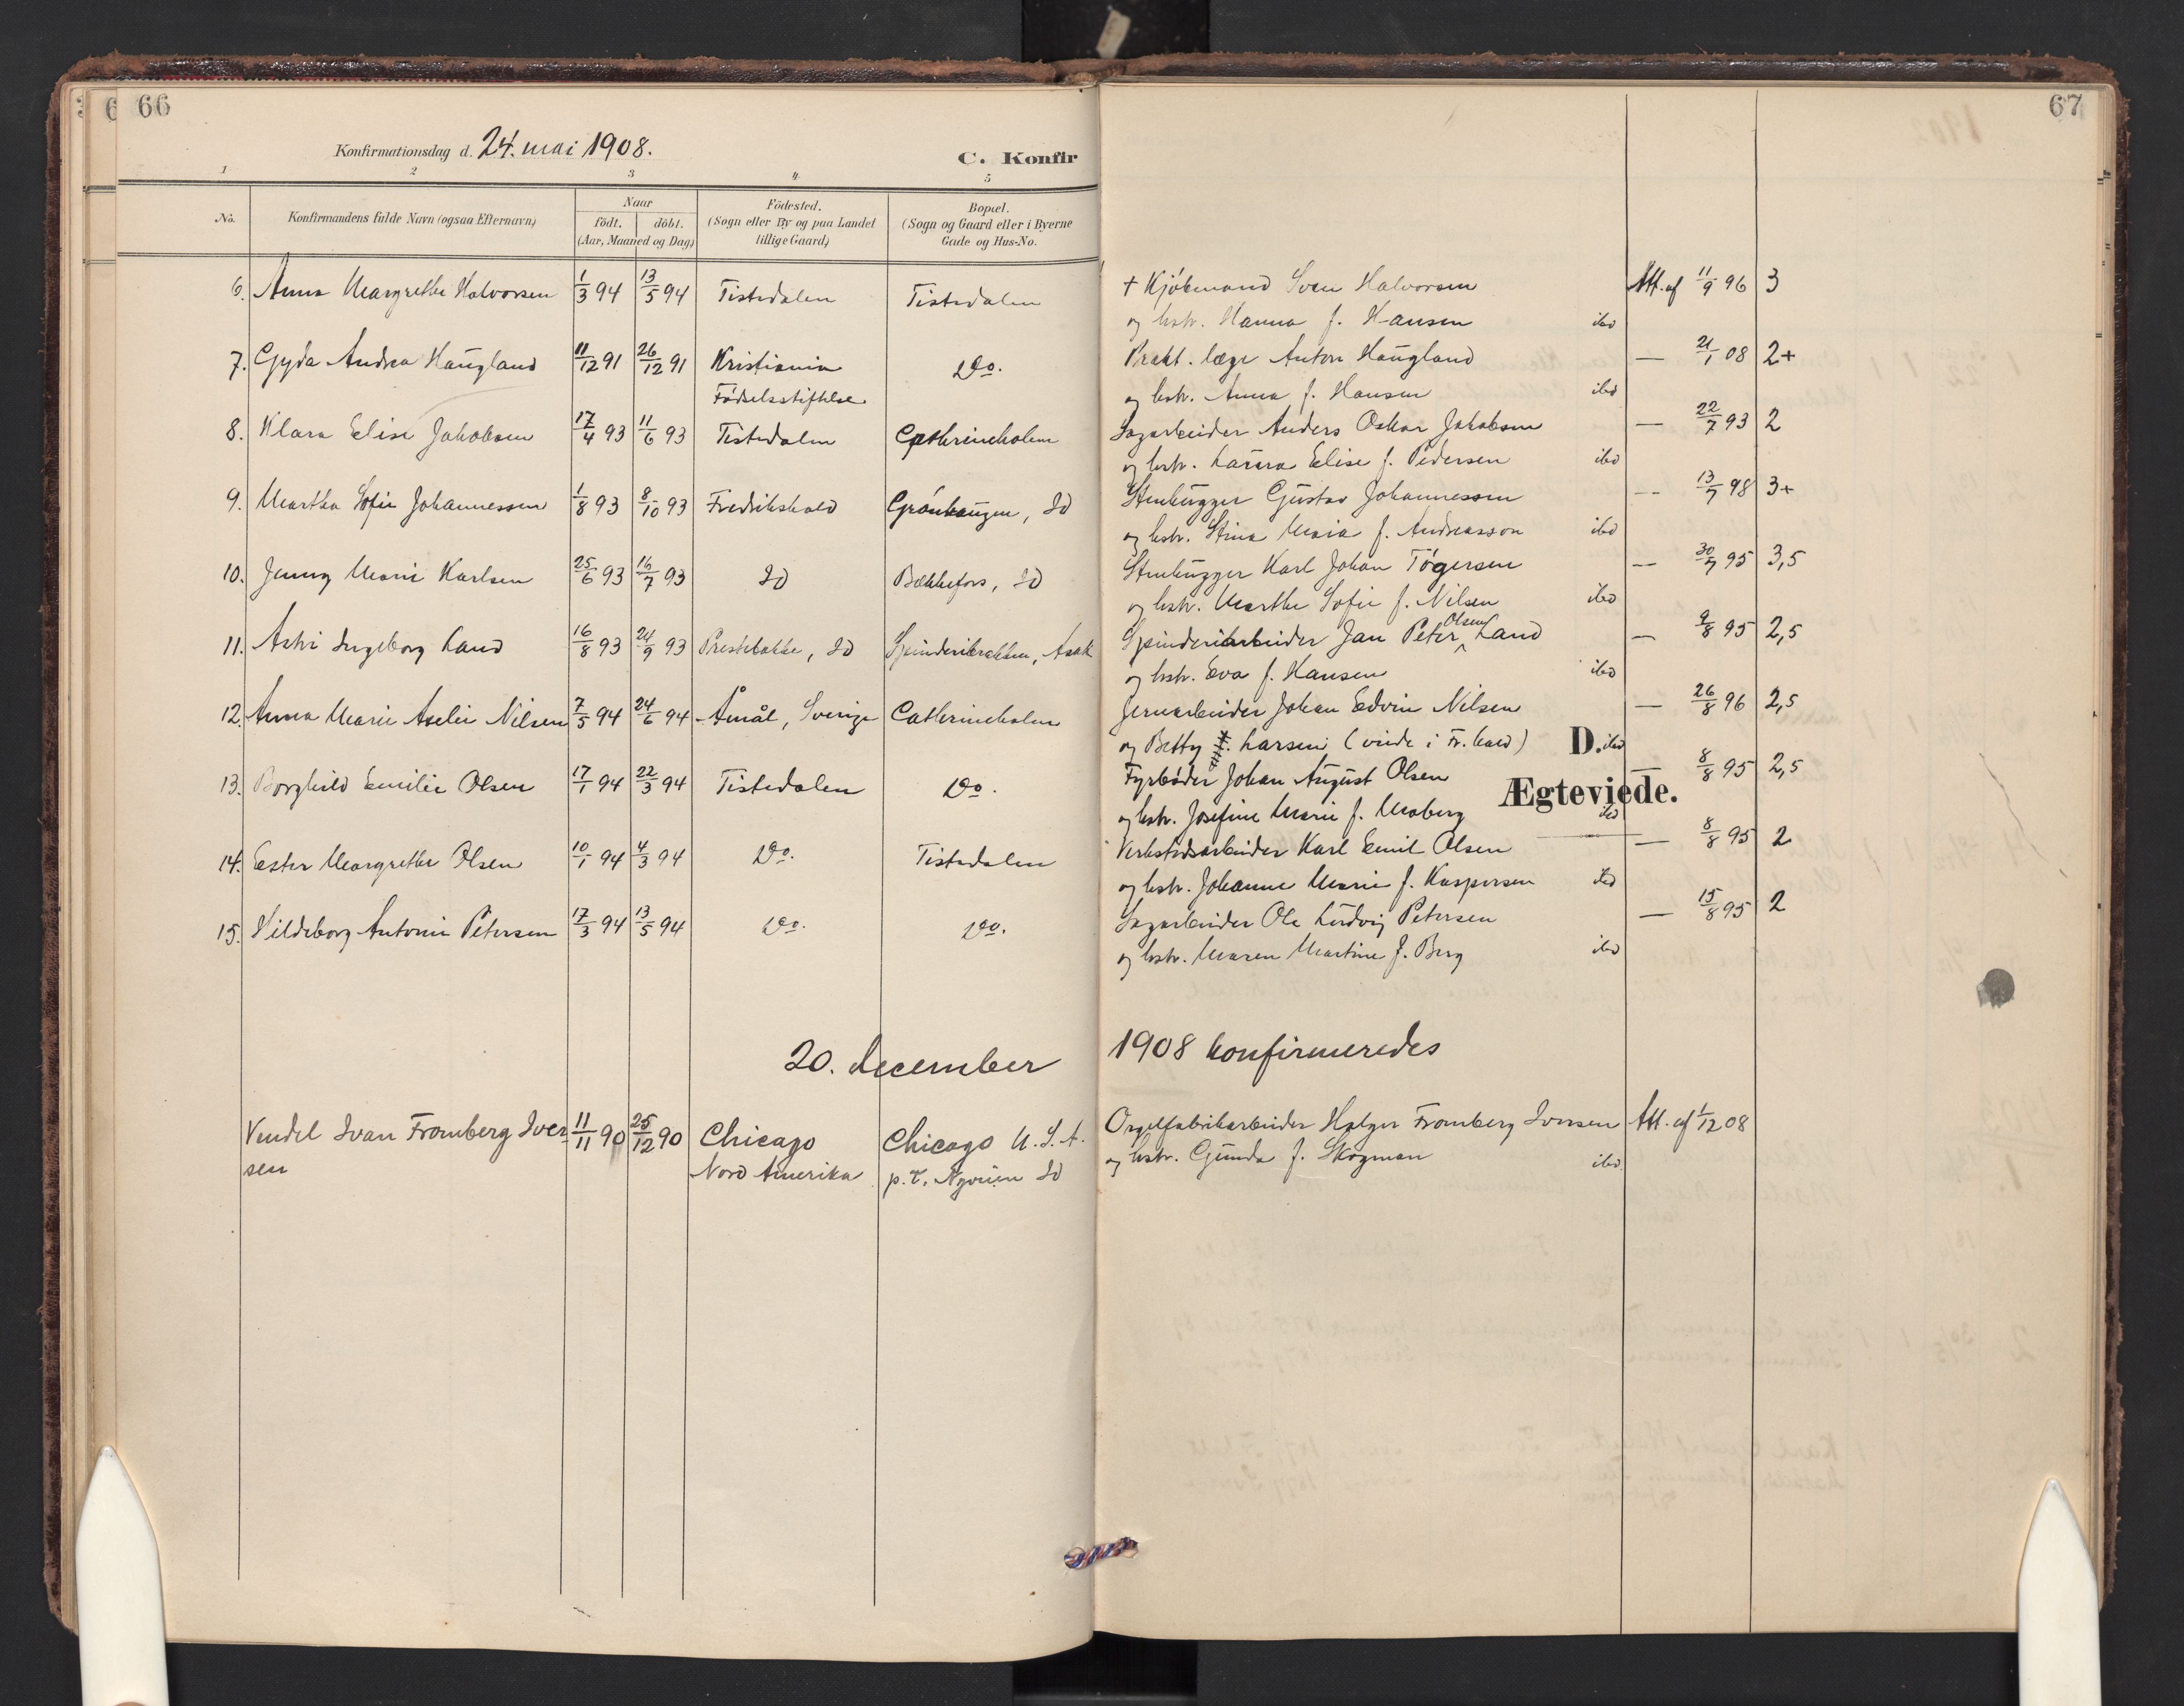 66
67
Konfirmationsdag d. 24. mai 1908.
C. Konfir
1 2 3 4 5
No.
Konfirmandens fulde Navn (ogsaa Efternavn)
Naar
födt. döbt.
(Aar, Maaned og Dag)
Födested.
(Sogn eller By og paa Landet
tillige Gaard)
Bopæl.
(Sogn og Gaard eller i Byerne
Gade og Hus-No.
6. Anna Margrethe Halvorsen 1/3 94 13/5 94 Tistedalen Tistedalen + Kjöbmand Sven Halvorsen Att. af 11/9 96 3
og hstr. Hanna f. Hansen ibd
7. Gyda Andrea Haugland 11/12 91 26/12 91 Kristiania Do. Prakt. læge Anton Haugland — 21/1 08 2+
Födselsstiftelse og hstr. Anna f. Hansen ibd
8. Klara Elise Jakobsen 17/4 93 11/6 93 Tistedalen Cathrineholm Sagarbeider Anders Oskar Jakobsen — 22/7 93 2
og hstr. Laura Elise f. Pedersen ibd
9. Martha Sofie Johannessen 1/8 93 8/10 93 Fredrikshald Grönhaugen, Id Stenhugger Gustav Johannessen — 13/7 98 3+
og hstr. Stina Maria f. Andreasson ibd
10. Jenny Marie Karlsen 25/6 93 16/7 93 Id Bækkefors, Id Stenhugger Karl Johan Tögersen — 30/7 95 3,5
og hstr. Marthe Sofie f. Nilsen ibd
11. Astri Ingeborg Land 16/8 93 24/9 93 Prestebakke, Id Spinderibrakken, Asak Spinderiarbeider Jan Peter Olsen Land — 9/8 95 2,5
og hstr. Eva f. Hansen ibd
12. Anna Marie Aselie Nilsen 7/5 94 24/6 94 Åmål, Sverige Cathrineholm Jernarbeider Johan Edvin Nilsen — 26/8 96 2,5
og Betty f. Larsen (viede i Fr.hald) ibd
D.
Ægteviede.
13. Borghild Emilie Olsen 17/1 94 22/3 94 Tistedalen Do. Fyrböder Johan August Olsen — 8/8 95 2,5
og hstr. Josefine Marie f. Moberg ibd
14. Ester Margrethe Olsen 10/1 94 4/3 94 Do. Tistedalen Verkstedsarbeider Karl Emil Olsen — 8/8 95 2
og hstr. Johanne Marie f. Kaspersen ibd
15. Hildeborg Antonie Petersen 17/3 94 13/5 94 Do. Do. Sagarbeider Ole Ludvig Petersen — 15/8 95 2
og hstr. Maren Martine f. Berg ibd
20. december 1908 konfirmeredes
Vendel Ivan Fromberg Iver 11/11 90 25/12 90 Chicago Chicago U.S.A. Orgelfabrikarbeider Holger Fromberg Iversen Att. af 1/12 08
sen Nord Amerika p.t. Nyveien Id og hstr. Gunda f. Skogman ibd.